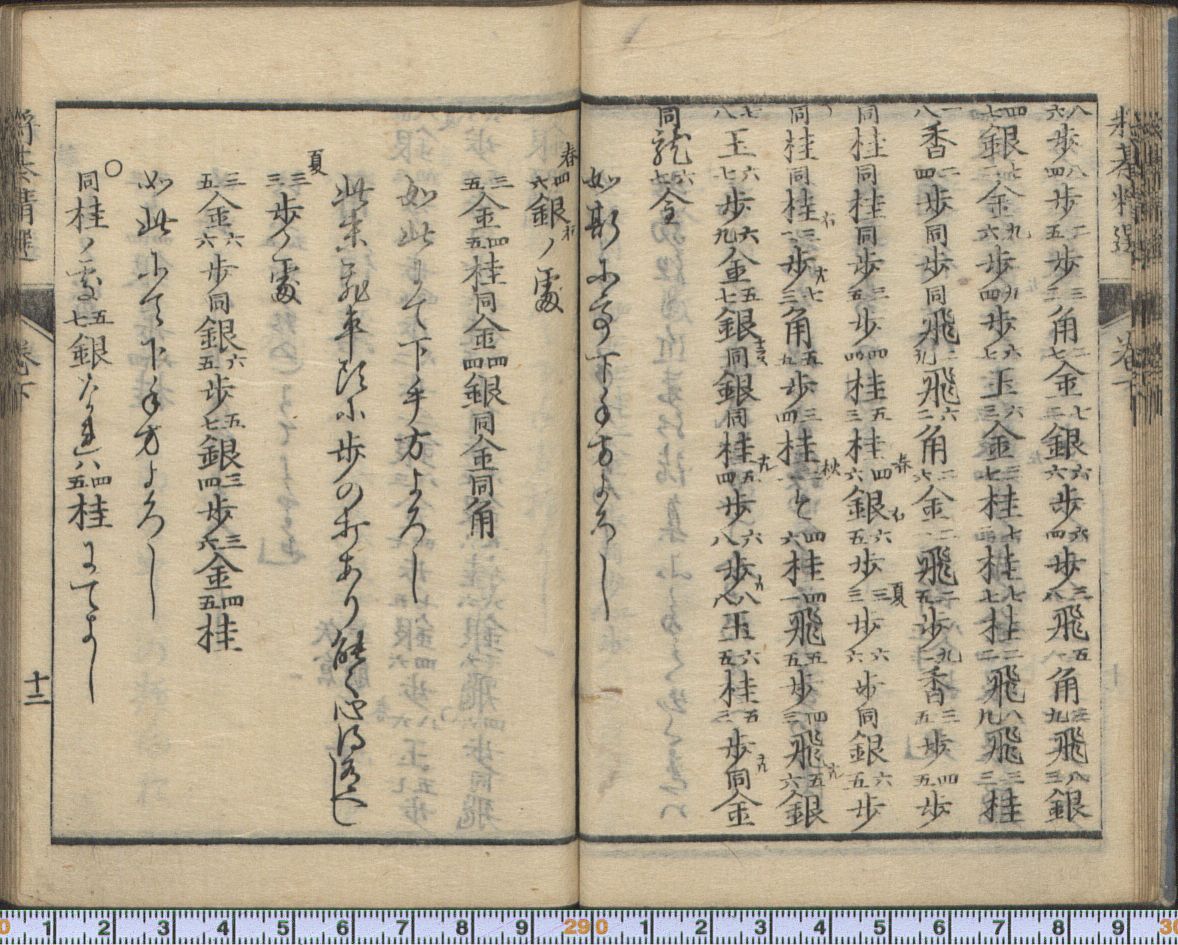 将棊精選 巻下
八六歩八四歩二五歩三三角二七金七二銀六六歩六四歩三八飛角飛八三銀
四七銀七二金九六歩九四歩六七玉六三金三七桂七三桂七七桂二二飛八九飛三三桂
一八香二四歩同歩同飛二九飛六二角二六金二二飛二五歩九二香三五歩四五歩
同桂同桂同歩三五歩四四桂五三桂春四六銀六五歩夏三三歩六六歩同銀六五歩
同桂同桂三一歩七三角五九歩三四桂秋と四六桂四一飛五五歩四三飛五六銀
七八玉六七歩六九金五七銀同銀同桂五四歩六八歩八八玉六五桂五三歩同金
同龍六七全
如斯にて下手方よろし
春四六銀ノ處
三五金四五桂同金四四銀同金同角
如此にて下手方よろし
此末飛車頭に歩の打あり能々心得へし
夏三三歩ノ處
三五金六六歩同銀六五歩五七銀三四歩三六金四五桂
如此して下手方よろし
○同桂ノ處五七銀なれハ四五桂にてよし
将棊精選 巻下 十二